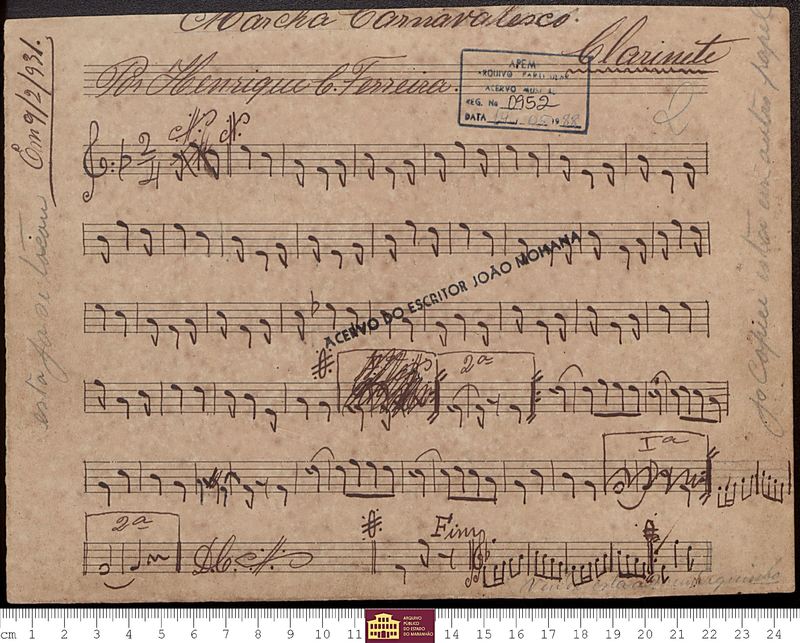 Marcha Carnavalesca.
Clarinete
Por Henrique C. Ferreira.
Em 9/2/931.
APEM
ARQUIVO PARTICULAR
ACERVO MUSICAL
REG. No 0952
DATA 14, 05, 1988
2
2/4
ACERVO DO ESCRITOR JOÃO MOHANA
2ª
Iª
2ª
D.C.
Fim
Já Copiei
cm 1 2 3 4 5 6 7 8 9 10 11 14 15 16 17 18 19 20 21 22 23 24
ARQUIVO
PÚBLICO
DO ESTADO
DO MARANHÃO